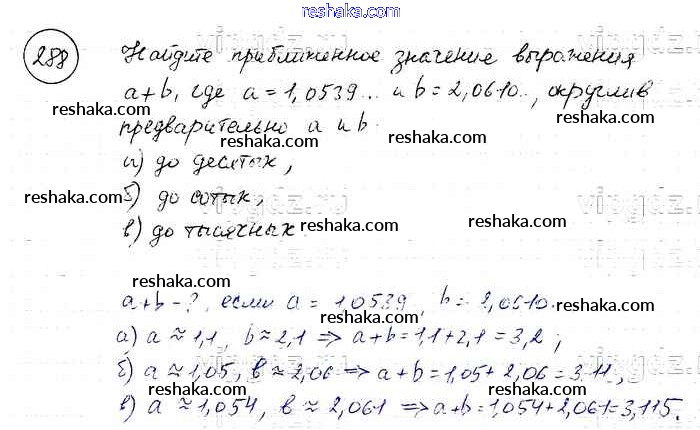 reshaka.com
288 Найдите приближенное значение выражения
a+b, где a=1,0539... и b=2,0610..., округлив
reshaka.com
предварительно a и b
reshaka.com
а) до десятых,
reshaka.com reshaka.com
б) до сотых,
reshaka.com
в) до тысячных
reshaka.com
reshaka.com
a+b-?, если a = 1,0539, b = 2,0610...
reshaka.com
а) a≈1,1, b≈2,1 => a+b=1,1+2,1=3,2;
reshaka.com
б) a≈1,05, b≈2,06 => a+b=1,05+2,06=3,11,
reshaka.com reshaka.com
в) a≈1,054, b≈2,061 => a+b=1,054+2,061=3,115.
reshaka.com